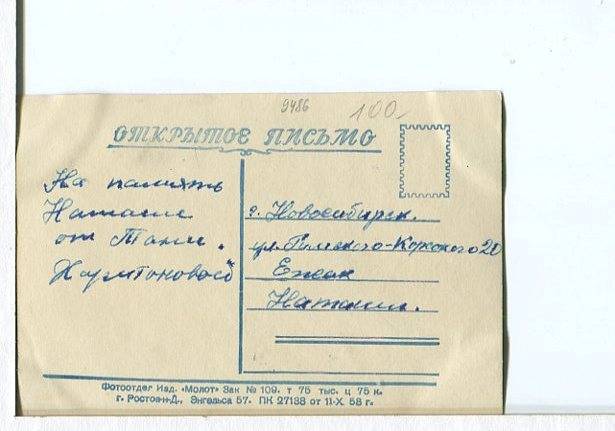 9486
100-
ОТКРЫТОЕ ПИСЬМО
На память
Наташи
от Тани.
Харитоновой
г. Новосибирск.
ул. Римского-Корсокого 20
Ежак
Наташи.
Фотоотдел Изд. «Молот» Зак № 109. т 75 тыс. ц 75 к.
г. Ростов-н-Д., Энгельса 57. ПК 27138 от 11-X. 58 г.